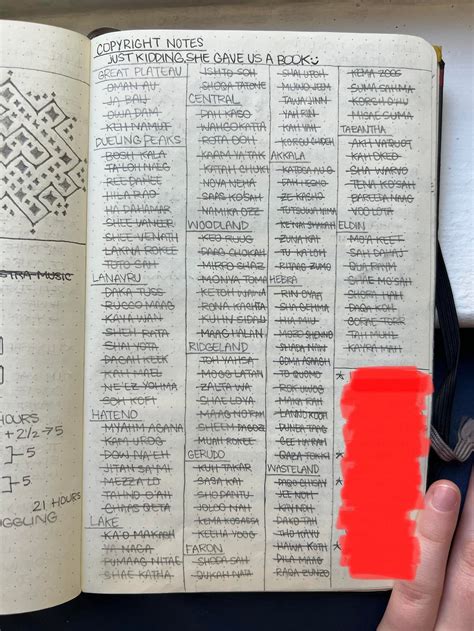 COPYRIGHT NOTES
JUST KIDDING, SHE GAVE US A BOOK
GREAT PLATEAU
OMAN AU
JA BAIJ
OWA DAIM
KEH NAMUT
DUELING PEAKS
BOSH KALA
REE DAHEE
HILA RAO
HA DAHAMAR
SHEE VANEER
SHEE VENATH
LAKNA ROKEE
TOTO SAH
LANAYRU
DAKA TUSS
RUCCO MAAG
KAYA WAN
SHEH RATA
SHAI YOTA
DAGAH KEEK
KAH MAEL
NE'EZ YOHMA
SOH KOFI
HATENO
MYAHM AGANA
KAM UROG
DOW NA'EH
JITAN SA'MI
MEZZA LO
TAHNO O'AH
CHAAS QETA
LAKE
KA'O MAKAGH
YA NAGA
PUMAAG NITAE
SHAE KATHA
ISHTO SOH
SHOGA TATONE
CENTRAL
DAH KASO
WAHGO KATTA
ROTA OOH
KAAM YA TAK
KATAH CHUKI
NOYA NEHA
SAAS KO'SAH
NAMIKA OZZ
WOODLAND
KEO RUUG
DAAG CHOKAH
MIRRO SHAZ
MONYA TOMA
KETOH WAWAI
RONA KACHTA
KUHN SIDAJJ
MAAG HALAN
RIDGELAND
TOH YAHSA
MOGG LATAN
ZALTA WA
SHAE LOYA
MAAG NO'RAH
SHEEM DAGOZE
GERUDO
KUH TAKAR
SASA KAI
SHO DANTU
JOLOO NAH
KEMA KOSASSA
KEEHA YOOG
FARON
SHODA SAH
SHAI UTOH
MUWO JEEM
TAWA JINN
YAH RIN
KAH YAH
KORGU CHIDEH
AKKALA
DAH HESHO
ZE KASHO
TUTSUWA NIMA
ZUNA KAI
TU KA'LOH
RITAAG ZUMO
HEBRA
RIN OYAA
SHA GEHMA
HIA MIU
MOZO SHENNO
SHADA NAW
GOMA ASAAGH
TO QUOMO
ROK UWOG
MAKA RAH
LANNO KOOH
DUNBA TAAG
GEE HA'RAH
QAZA TOKKI
WASTELAND
DAKO TAH
THO KAYU
HAWA KOTH
DILA MAAG
RAQA ZUNZO
KEMA ZOOS
SUMA SAHMA
KORSH O'HU
MISAE SUMA
TABANTHA
AKH VA'QUOT
KAH OKEO
SHA WARVO
TENA KO'SAH
BAREEDA NAAG
VOO LOTA
ELDIN
MO'A KEET
SAH DAHAJ
QUA RAYM
SHAE MO'SAH
SHORA HAH
DAQA KOH
GORAE TORR
TAH MUHL
KAYRA MAH
HOURS
+ 2 1/2 → 5
5
5
21 HOURS